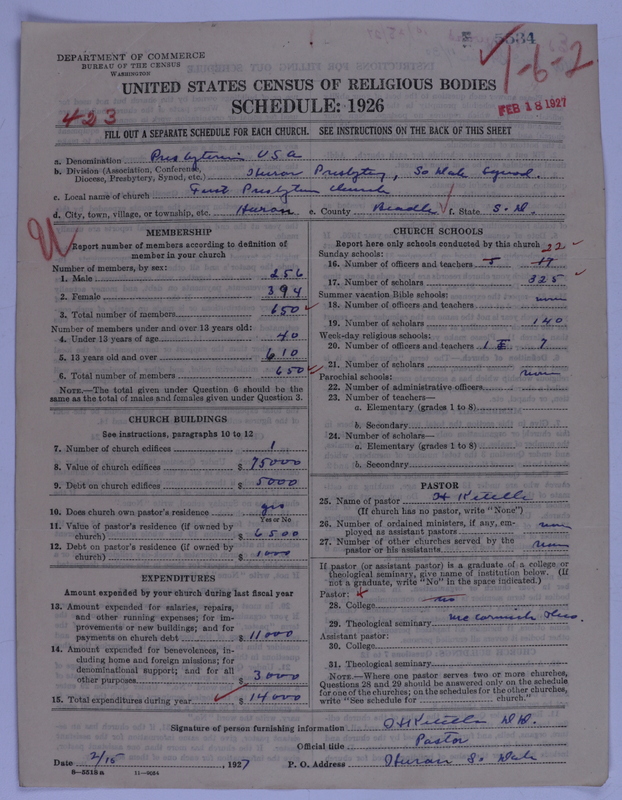 5534
1-6-2
DEPARTMENT OF COMMERCE
BUREAU OF THE CENSUS
WASHINGTON
UNITED STATES CENSUS OF RELIGIOUS BODIES
SCHEDULE: 1926
FEB 18 1927
423
FILL OUT A SEPARATE SCHEDULE FOR EACH CHURCH. SEE INSTRUCTIONS ON THE BACK OF THIS SHEET
a. Denomination Presbyterian USA
b. Division (Association, Conference, Diocese, Presbytery, Synod, etc.) Huron Presbytery, So Dak Synod.
c. Local name of church First Presbytn Church
d. City, town, village, or township, etc. Huron e. County Beadle f. State S. D.
U
MEMBERSHIP
Report number of members according to definition of
member in your church
Number of members, by sex:
1. Male 256
2. Female 394
3. Total number of members 650
Number of members under and over 13 years old:
4. Under 13 years of age 40
5. 13 years old and over 610
6. Total number of members 650
NOTE.—The total given under Question 6 should be the
same as the total of males and females given under Question 3.
CHURCH BUILDINGS
See instructions, paragraphs 10 to 12
7. Number of church edifices 1
8. Value of church edifices $ 75000
9. Debt on church edifices $ 5000
10. Does church own pastor's residence yes
Yes or No
11. Value of pastor's residence (if owned by
church) $ 6500
12. Debt on pastor's residence (if owned by
church) $ 1000
EXPENDITURES
Amount expended by your church during last fiscal year
13. Amount expended for salaries, repairs,
and other running expenses; for im-
provements or new buildings; and for
payments on church debt $ 11000
14. Amount expended for benevolences, in-
cluding home and foreign missions; for
denominational support; and for all
other purposes $ 3000
15. Total expenditures during year $ 14000
CHURCH SCHOOLS
Report here only schools conducted by this church
Sunday schools: 22
16. Number of officers and teachers 5 17
17. Number of scholars 325
Summer vacation Bible schools:
18. Number of officers and teachers none
19. Number of scholars 140
Week-day religious schools:
20. Number of officers and teachers 7
21. Number of scholars
Parochial schools: none
22. Number of administrative officers
23. Number of teachers—
a. Elementary (grades 1 to 8)
b. Secondary
24. Number of scholars—
a. Elementary (grades 1 to 8)
b. Secondary
PASTOR
25. Name of pastor
(If church has no pastor, write "None")
26. Number of ordained ministers, if any, em-
ployed as assistant pastors none
27. Number of other churches served by the
pastor or his assistants none
If pastor (or assistant pastor) is a graduate of a college or
theological seminary, give name of institution below. (If
not a graduate, write "No" in the space indicated.)
Pastor:
28. College no
29. Theological seminary McCormick Theo.
Assistant pastor:
30. College
31. Theological seminary
NOTE.—Where one pastor serves two or more churches,
Questions 28 and 29 should be answered only on the schedule
for one of the churches; on the schedules for the other churches,
write "See schedule for church."
Signature of person furnishing information
Official title Pastor
Date 2/15, 1927 P. O. Address Huron So Dak
8—5519 a 11—9024